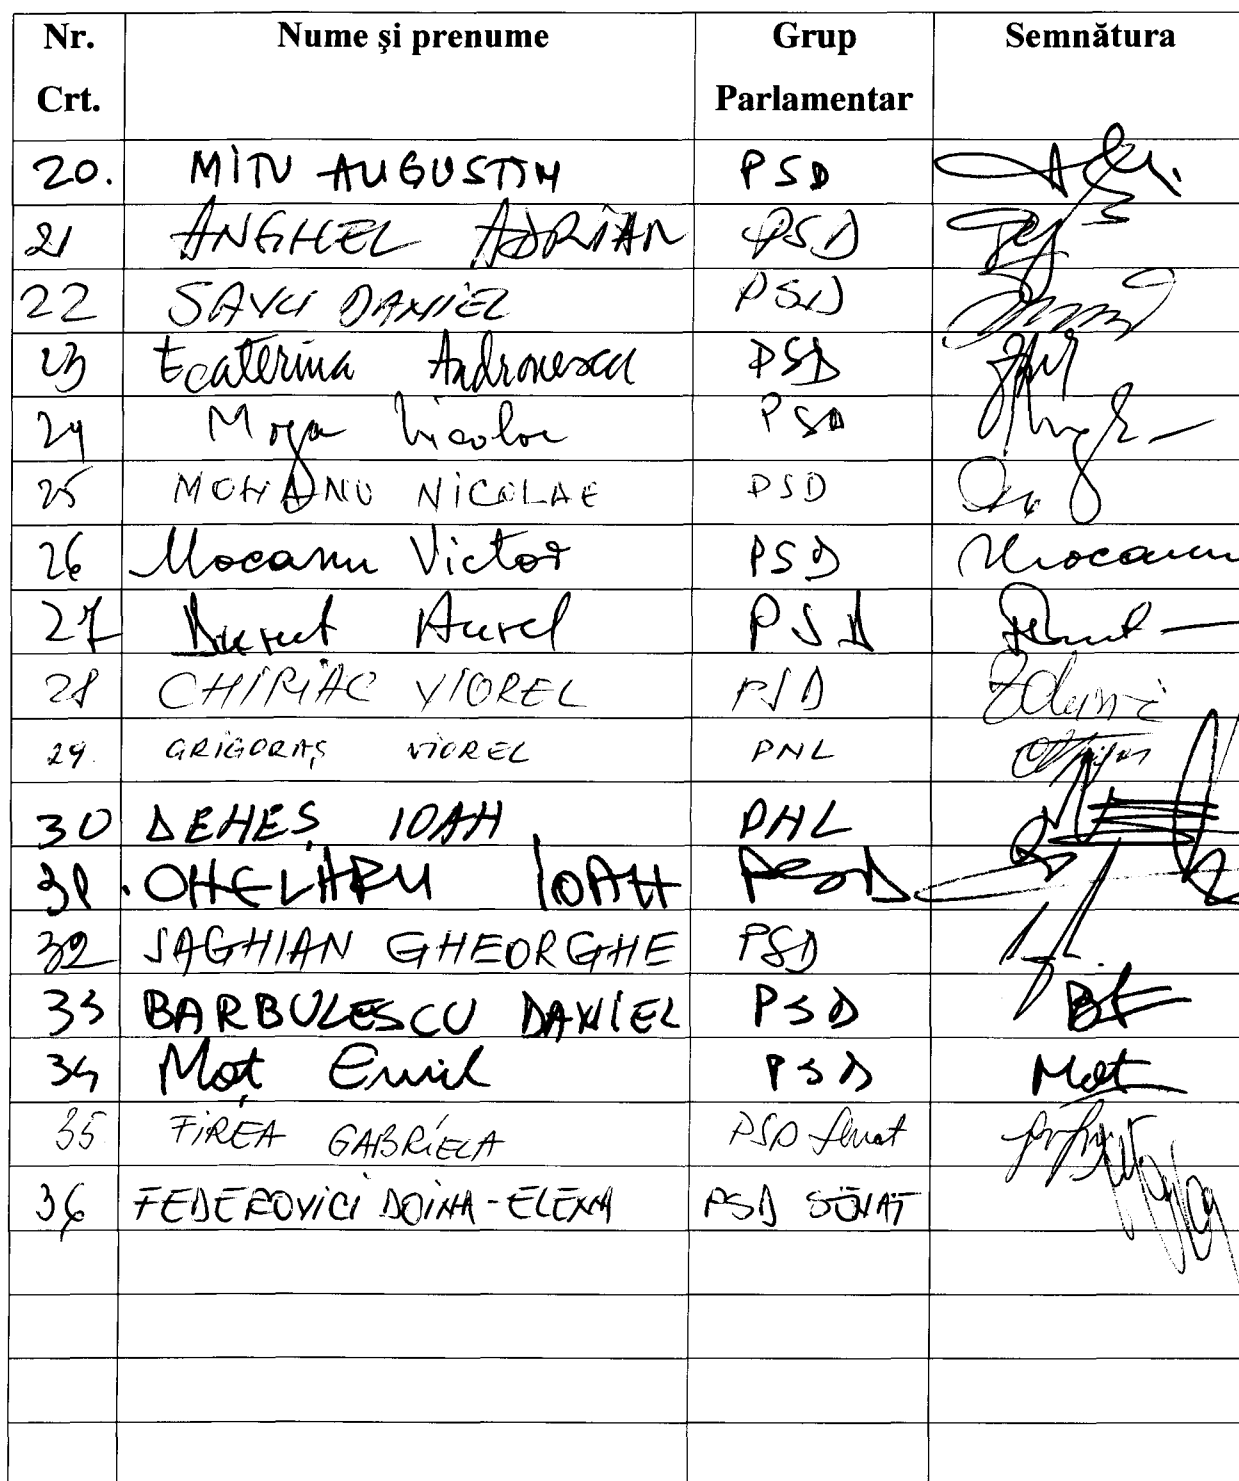 Nr. Crt. Nume şi prenume Grup Parlamentar Semnătura
20. MITU AUGUSTIN PSD
21 ANGHEL ADRIAN PSD
22 SAVU DANIEL PSD
23 Ecaterina Andronescu PSD
24 Moga Nicolae PSD
25 MOHANU NICOLAE PSD
26 Mocanu Victor PSD Mocanu
27 Duruț Aurel PSD
28 CHIRIAC VIOREL PSD
29. GRIGORAŞ VIOREL PNL
30 DENEȘ IOAN PNL
31. CHELARU IOAN PSD
32 SAGHIAN GHEORGHE PSD
33 BARBULESCU DANIEL PSD
34 Moț Emil PSD Moț
35 FIREA GABRIELA PSD Senat
36 FEDEROVICI DOINA-ELENA PSD SENAT